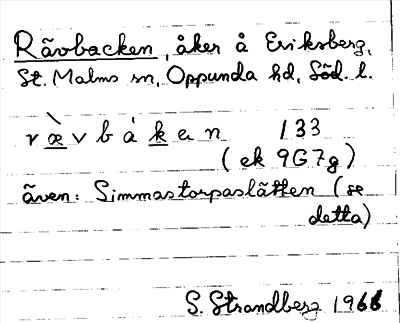 Rävbacken, åker å Eriksberg,
St. Malms sn, Oppunda hd, Söd. l.
r æ̀ v b á k e n 133
(ek 9G7g)
även: Simmastorpaslätten (se
detta)
S. Strandberg 1966